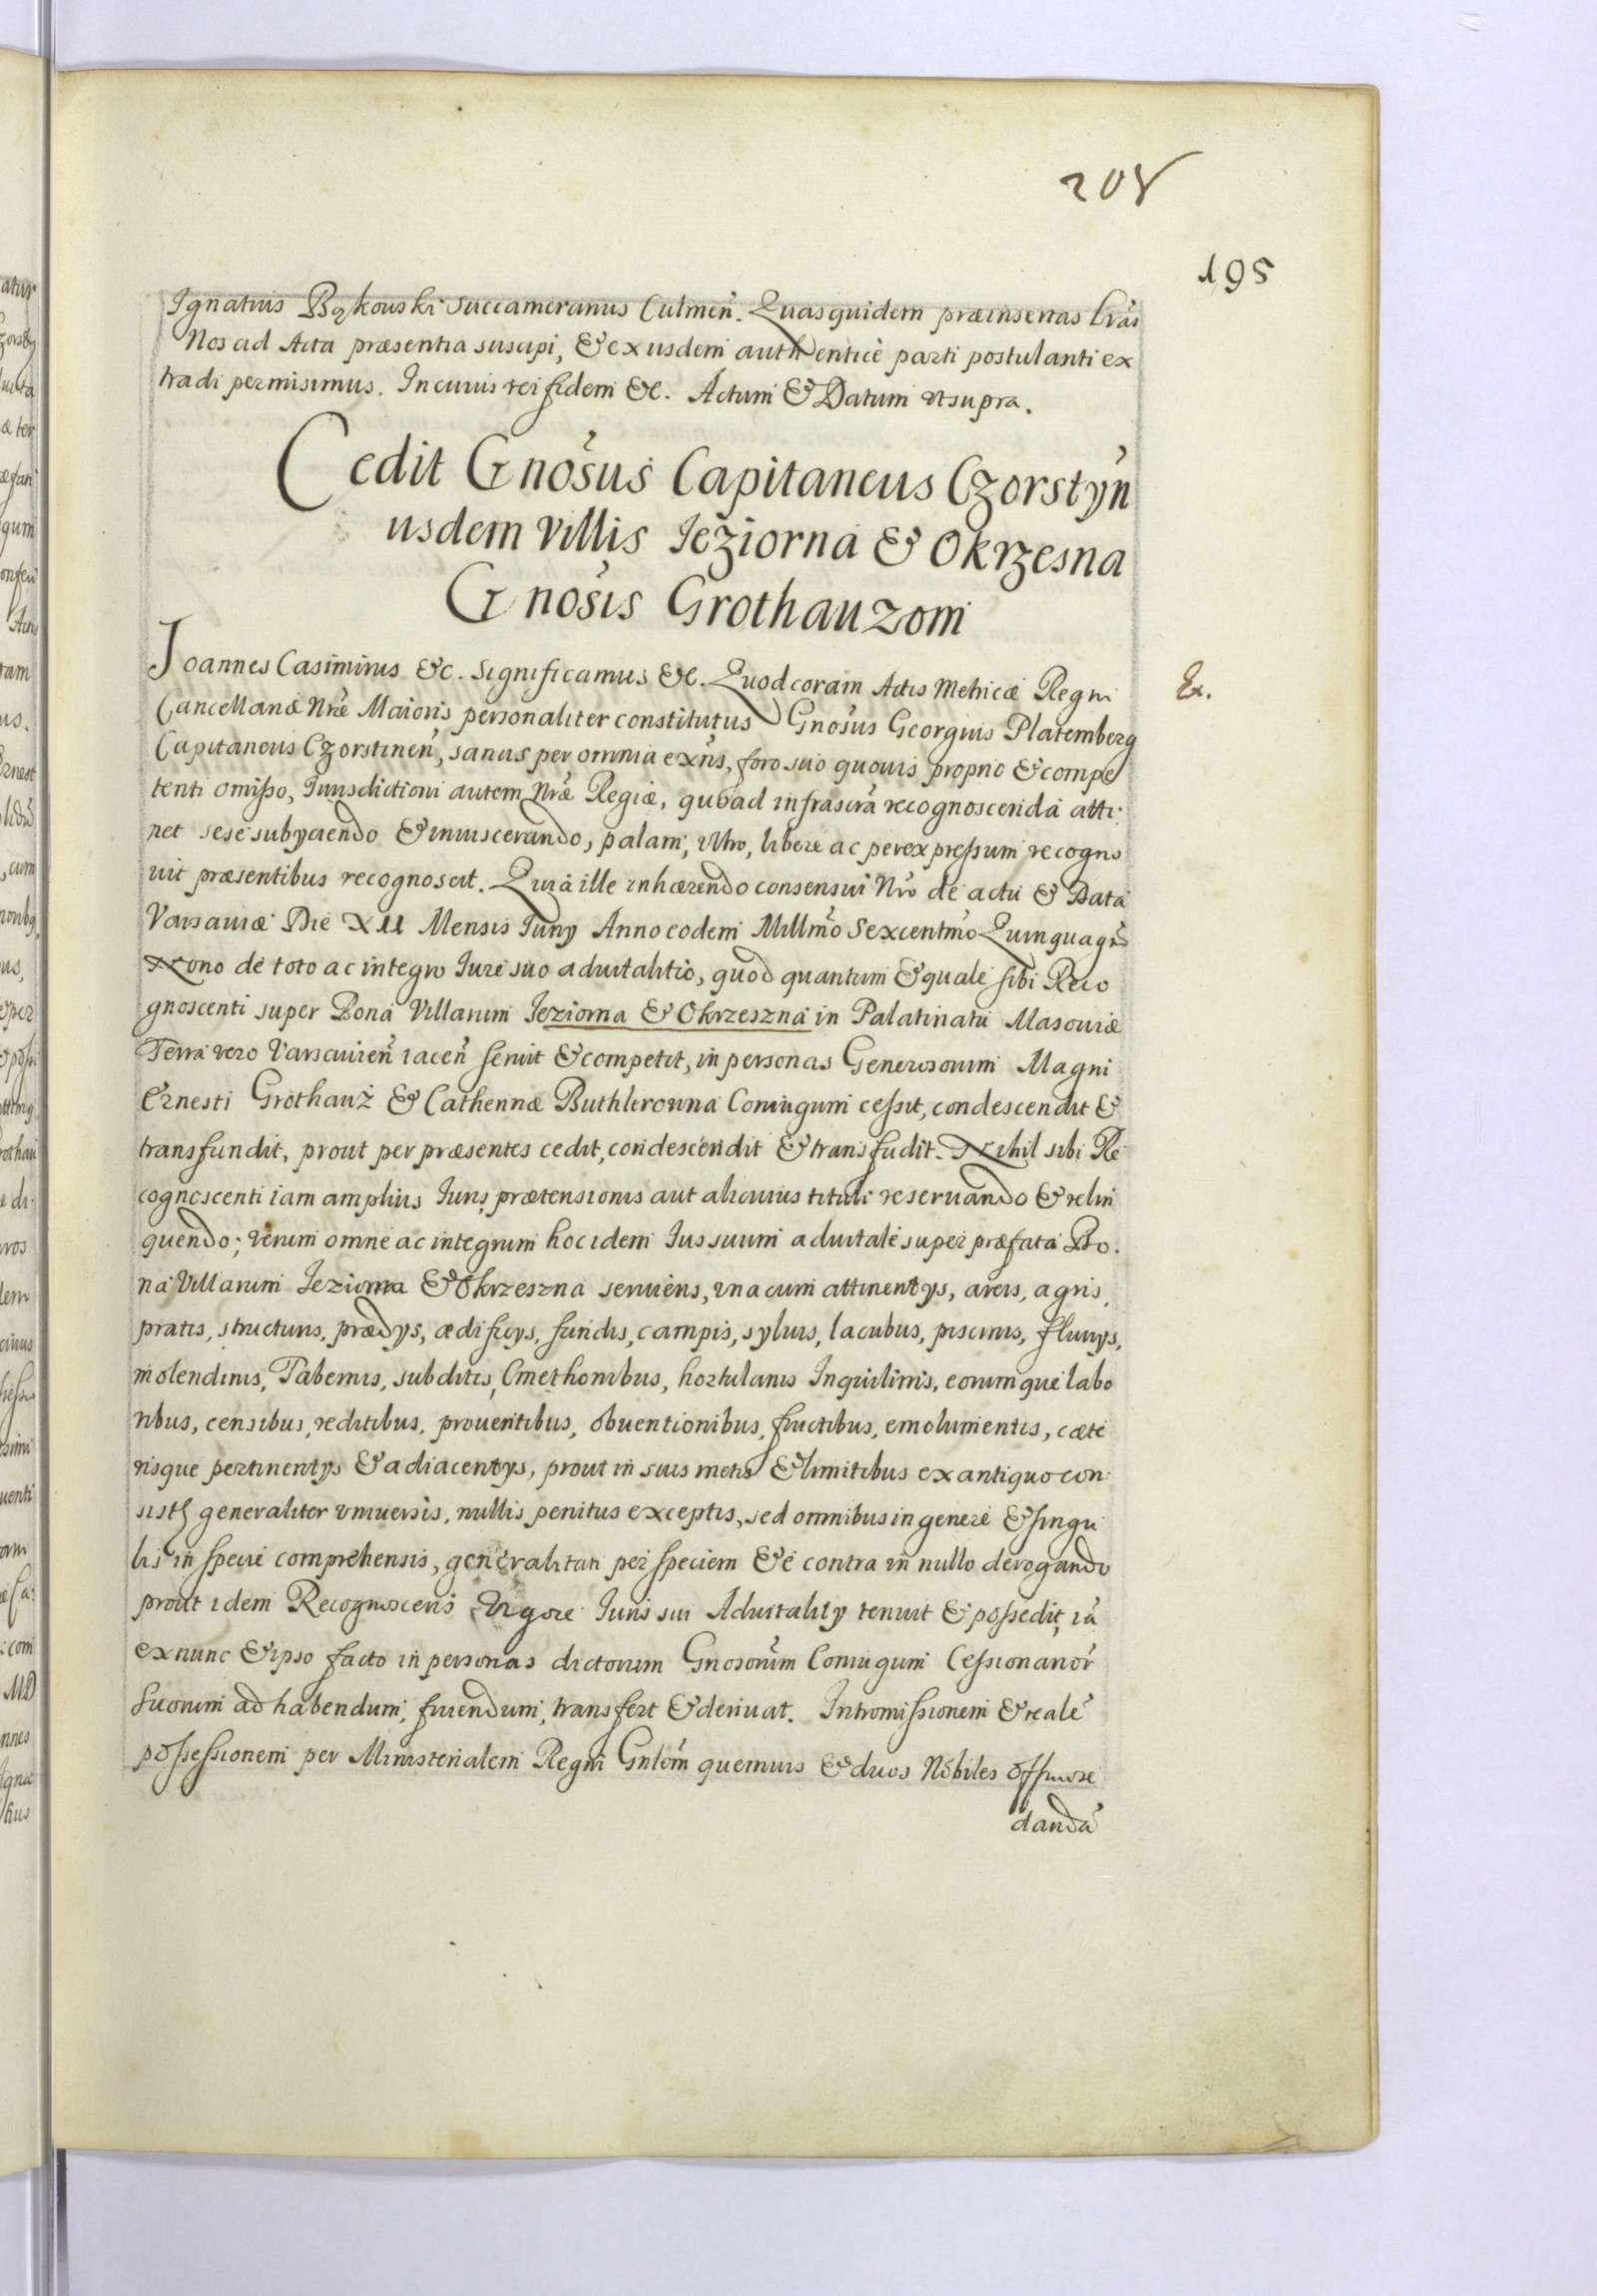 208
195
Ignatius Bąkowski Succameranus Culmeñ. Quasquidem præinsertas lr̃as
Nos ad Acta præsentia suscipi, & ex usdem authenticè parti postulanti ex
tradi permisimus. In cuius rei fidem &c. Actum & Datum ut supra.
Cedit Gnõsus Capitaneus Czorstyñ
usdem Villis Jeziorna & Okrzesna
Gnõsis Grothauzom
Joannes Casimirus &c. Significamus &c. Quod coram Actis Metricæ Regni
Ex.
Cancellariæ Nr̃æ Maioris personaliter constitutus Gnõsus Georgius Platemberg
Capitaneus Czorstineñ, sanus per omnia exñs, foro suo quouis proprio & compe
tenti omisso, Jurisdictioni autem Nr̃æ Regiæ, quoad infrascr̃a recognoscenda atti:
net sese subyciendo & inuiscerando, palam, vltro, libere ac per expressum recogno
uit præsentibus recognoscit. Quia ille inhærendo consensui Nr̃o de actu & Data
Varsauiæ Die XII Mensis Juny Anno eodem Millm̃o Sexcentm̃o Quinquagm̃o
Nono de toto ac integro Jure suo aduitalitio, quod quantum & quale sibi Reco
gnoscenti super Bona Villarum Jeziorna & Okrzeszna in Palatinatu Masouiæ
Terra vero Varsauieñ iaceñ seruit & competit, in personas Generosorum Magni
Ernesti Grothauz & Catherinæ Buthlerowna Coniugum cessit, condescendit &
transfundit, prout per præsentes cedit, condescendit & transfudit. Nihil sibi Re
cognoscenti iam amplius Juris prætensionis aut alicuius tituli reseruando & relin
quendo; verum omne ac integrum hoc idem Jus suum aduitale super præfata Bo.
na Villarum Jeziorna & Okrzeszna seruiens, vna cum attinentys, areis, agris,
pratis, structuris, prædys, ædificys, fundis, campis, syluis, lacubus, piscinis, fluuys,
molendinis, Tabernis, subditis, Cmethonibus, hortulanis Inquilinis, eorumque labo
ribus, censibus, reditibus, prouentibus, obuentionibus, fructibus, emolumentis, cæte
risque pertinentys & adiacentys, prout in suis metis & limitibus ex antiquo con:
sistt generaliter vniuersis, nullis penitus exceptis, sed omnibus in genere & singu
lis in specie comprehensis, generalitati per speciem & è contra in nullo derogando
prout idem Recognoscens Vigore Juris sui Aduitality tenuit & possedit, ita
ex nunc & ipso facto in personas dictorum Gnosorũm Coniugum Cessionarior̃
suorum ad habendum, fruendum, transfert & deriuat. Intromissionem & realẽ
possessionem per Ministerialem Regni Gnlẽm quemuis & duos Nobiles offuiore
dandã